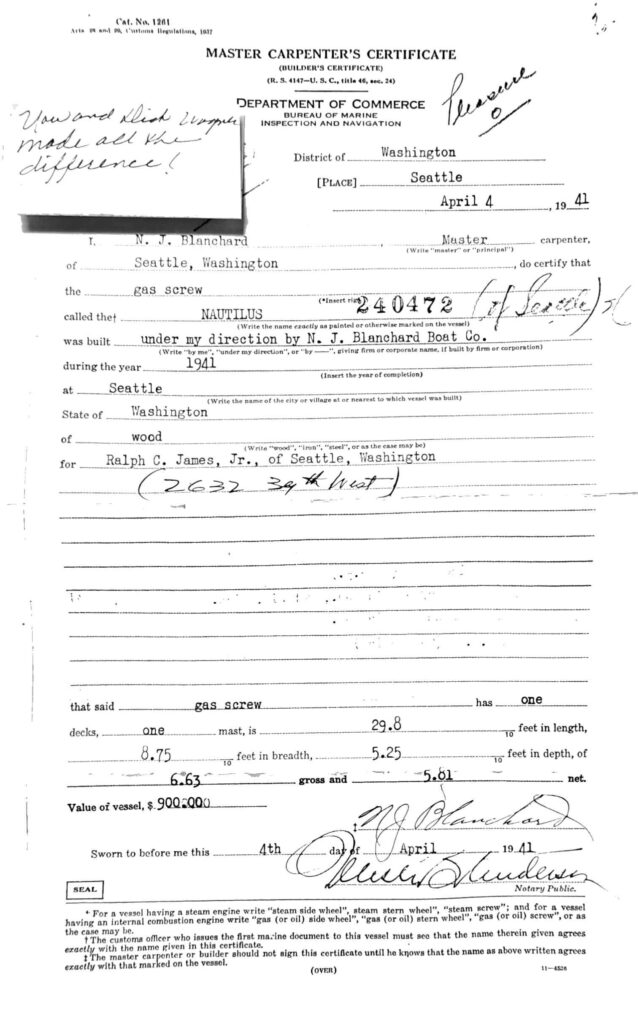 Cat. No. 1261
Arts 28 and 29, Customs Regulations, 1937
MASTER CARPENTER'S CERTIFICATE
(BUILDER'S CERTIFICATE)
(R. S. 4147—U. S. C., title 46, sec. 24)
Pleasure
You and Dick Wagner
made all the
difference!
DEPARTMENT OF COMMERCE
BUREAU OF MARINE
INSPECTION AND NAVIGATION
District of Washington
[PLACE] Seattle
April 4, 1941
I, N. J. Blanchard, Master carpenter,
(Write "master" or "principal")
of Seattle, Washington, do certify that
the gas screw
(*Insert rig) 240472 (of Seattle)
called the† NAUTILUS
(Write the name exactly as painted or otherwise marked on the vessel)
was built under my direction by N. J. Blanchard Boat Co.
(Write "by me", "under my direction", or "by ——", giving firm or corporate name, if built by firm or corporation)
during the year 1941
(Insert the year of completion)
at Seattle
(Write the name of the city or village at or nearest to which vessel was built)
State of Washington
of wood
(Write "wood", "iron", "steel", or as the case may be)
for Ralph C. James, Jr., of Seattle, Washington
(2632 39th West)
that said gas screw has one
decks, one mast, is 29.8 10 feet in length,
8.75 10 feet in breadth, 5.25 10 feet in depth, of
6.63 gross and 5.81 net.
Value of vessel, $ 900.000
‡ N J Blanchard
Sworn to before me this 4th day of April 1941
SEAL
Notary Public.
* For a vessel having a steam engine write "steam side wheel", steam stern wheel", "steam screw"; and for a vessel
having an internal combustion engine write "gas (or oil) side wheel", "gas (or oil) stern wheel", "gas (or oil) screw", or as
the case may be.
† The customs officer who issues the first marine document to this vessel must see that the name therein given agrees
exactly with the name given in this certificate.
‡ The master carpenter or builder should not sign this certificate until he knows that the name as above written agrees
exactly with that marked on the vessel.
(OVER)
11—4528